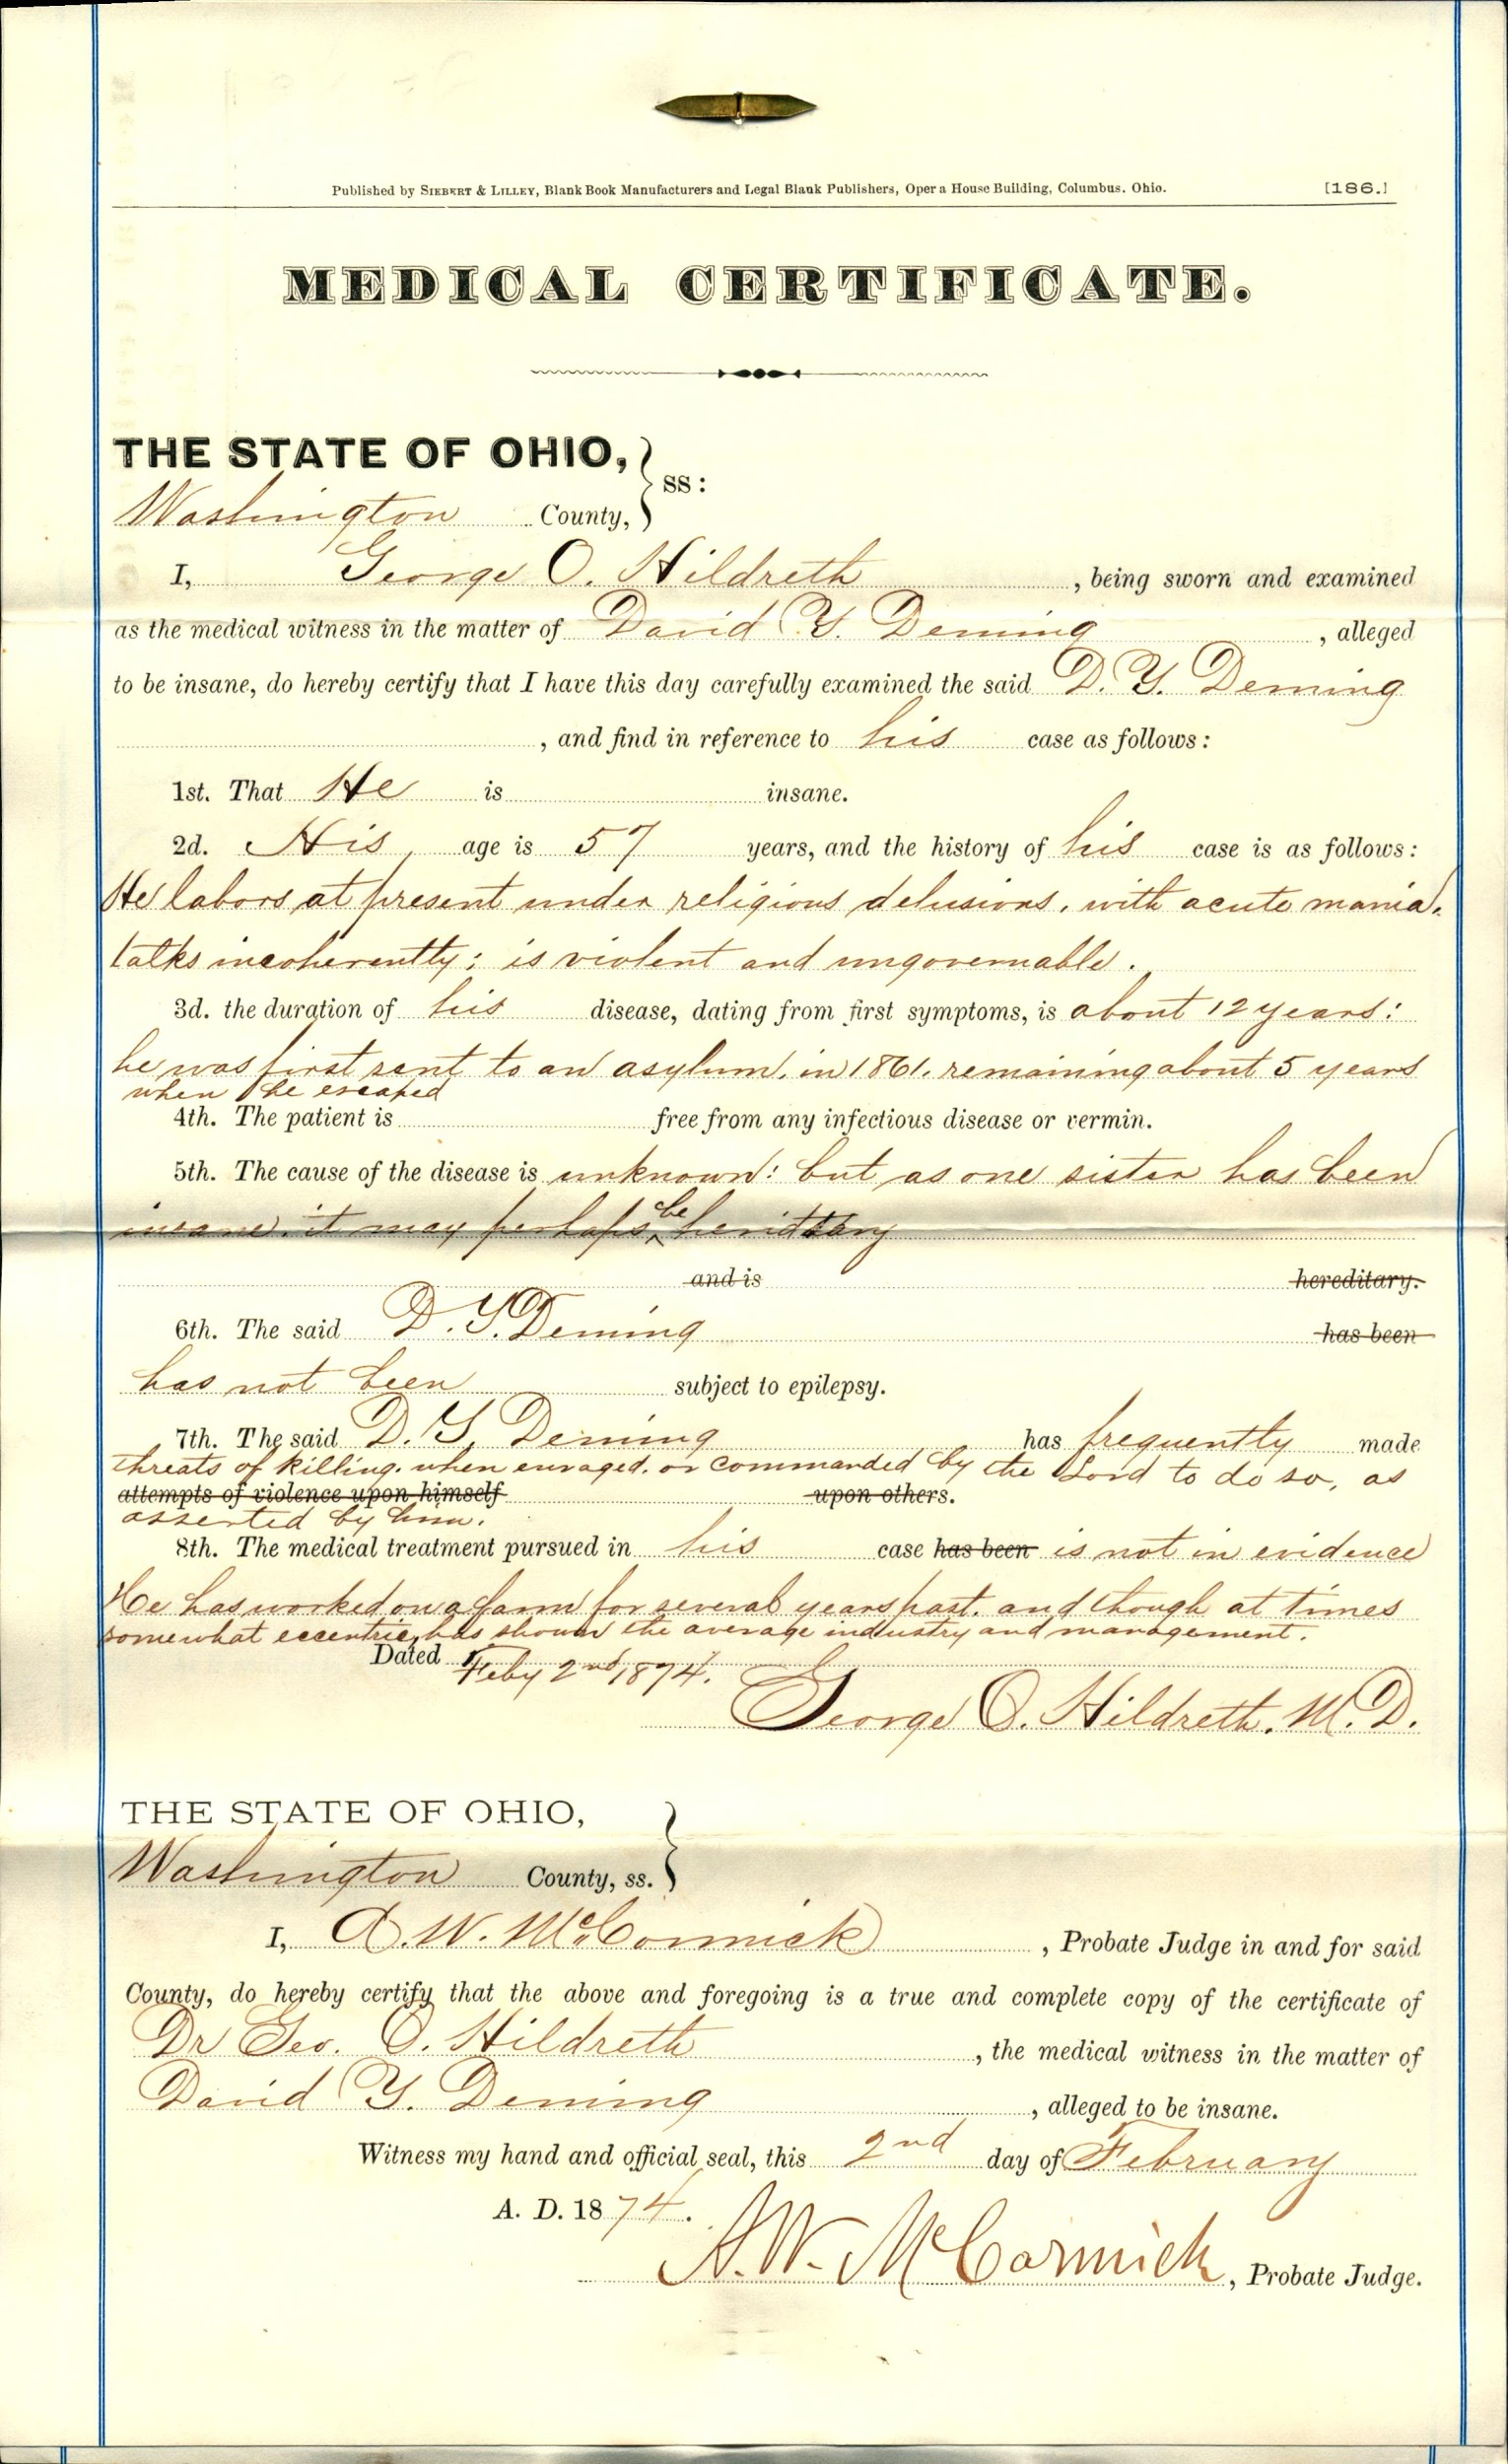 Published by SIEBERT & LILLEY, Blank Book Manufacturers and Legal Blank Publishers, Opera House Building, Columbus. Ohio. [186.]
MEDICAL CERTIFICATE.
THE STATE OF OHIO,
ss:
Washington County,
I, George O. Hildreth , being sworn and examined
as the medical witness in the matter of David Y. Deming , alleged
to be insane, do hereby certify that I have this day carefully examined the said D. Y. Deming
, and find in reference to his case as follows:
1st. That He is insane.
2d. His age is 57 years, and the history of his case is as follows:
He labors at present under religious delusions, with acute mania.
talks incoherently; is violent and ungovernable.
3d. the duration of his disease, dating from first symptoms, is about 12 years:
he was first sent to an asylum, in 1861. remaining about 5 years
when he escaped
4th. The patient is free from any infectious disease or vermin.
5th. The cause of the disease is unknown: but as one sister has been
insane. it may perhaps be heridtary
and is hereditary.
6th. The said D. Y. Deming has been
has not been subject to epilepsy.
7th. The said D. Y. Deming has frequently made
threats of killing. when enraged. or commanded by the Lord to do so, as
attempts of violence upon himself upon others.
asserted by him.
8th. The medical treatment pursued in his case has been is not in evidence
He has worked on a farm for several years past. and though at times
somewhat eccentric, has shown the average industry and management.
Dated Feby 2nd, 1874.
George O. Hildreth. M. D.
THE STATE OF OHIO,
Washington County, ss.
I, A. W. McCormick , Probate Judge in and for said
County, do hereby certify that the above and foregoing is a true and complete copy of the certificate of
Dr Geo. O. Hildreth , the medical witness in the matter of
David Y. Deming , alleged to be insane.
Witness my hand and official seal, this 2nd day of February
A. D. 1874.
A. W. McCormick , Probate Judge.